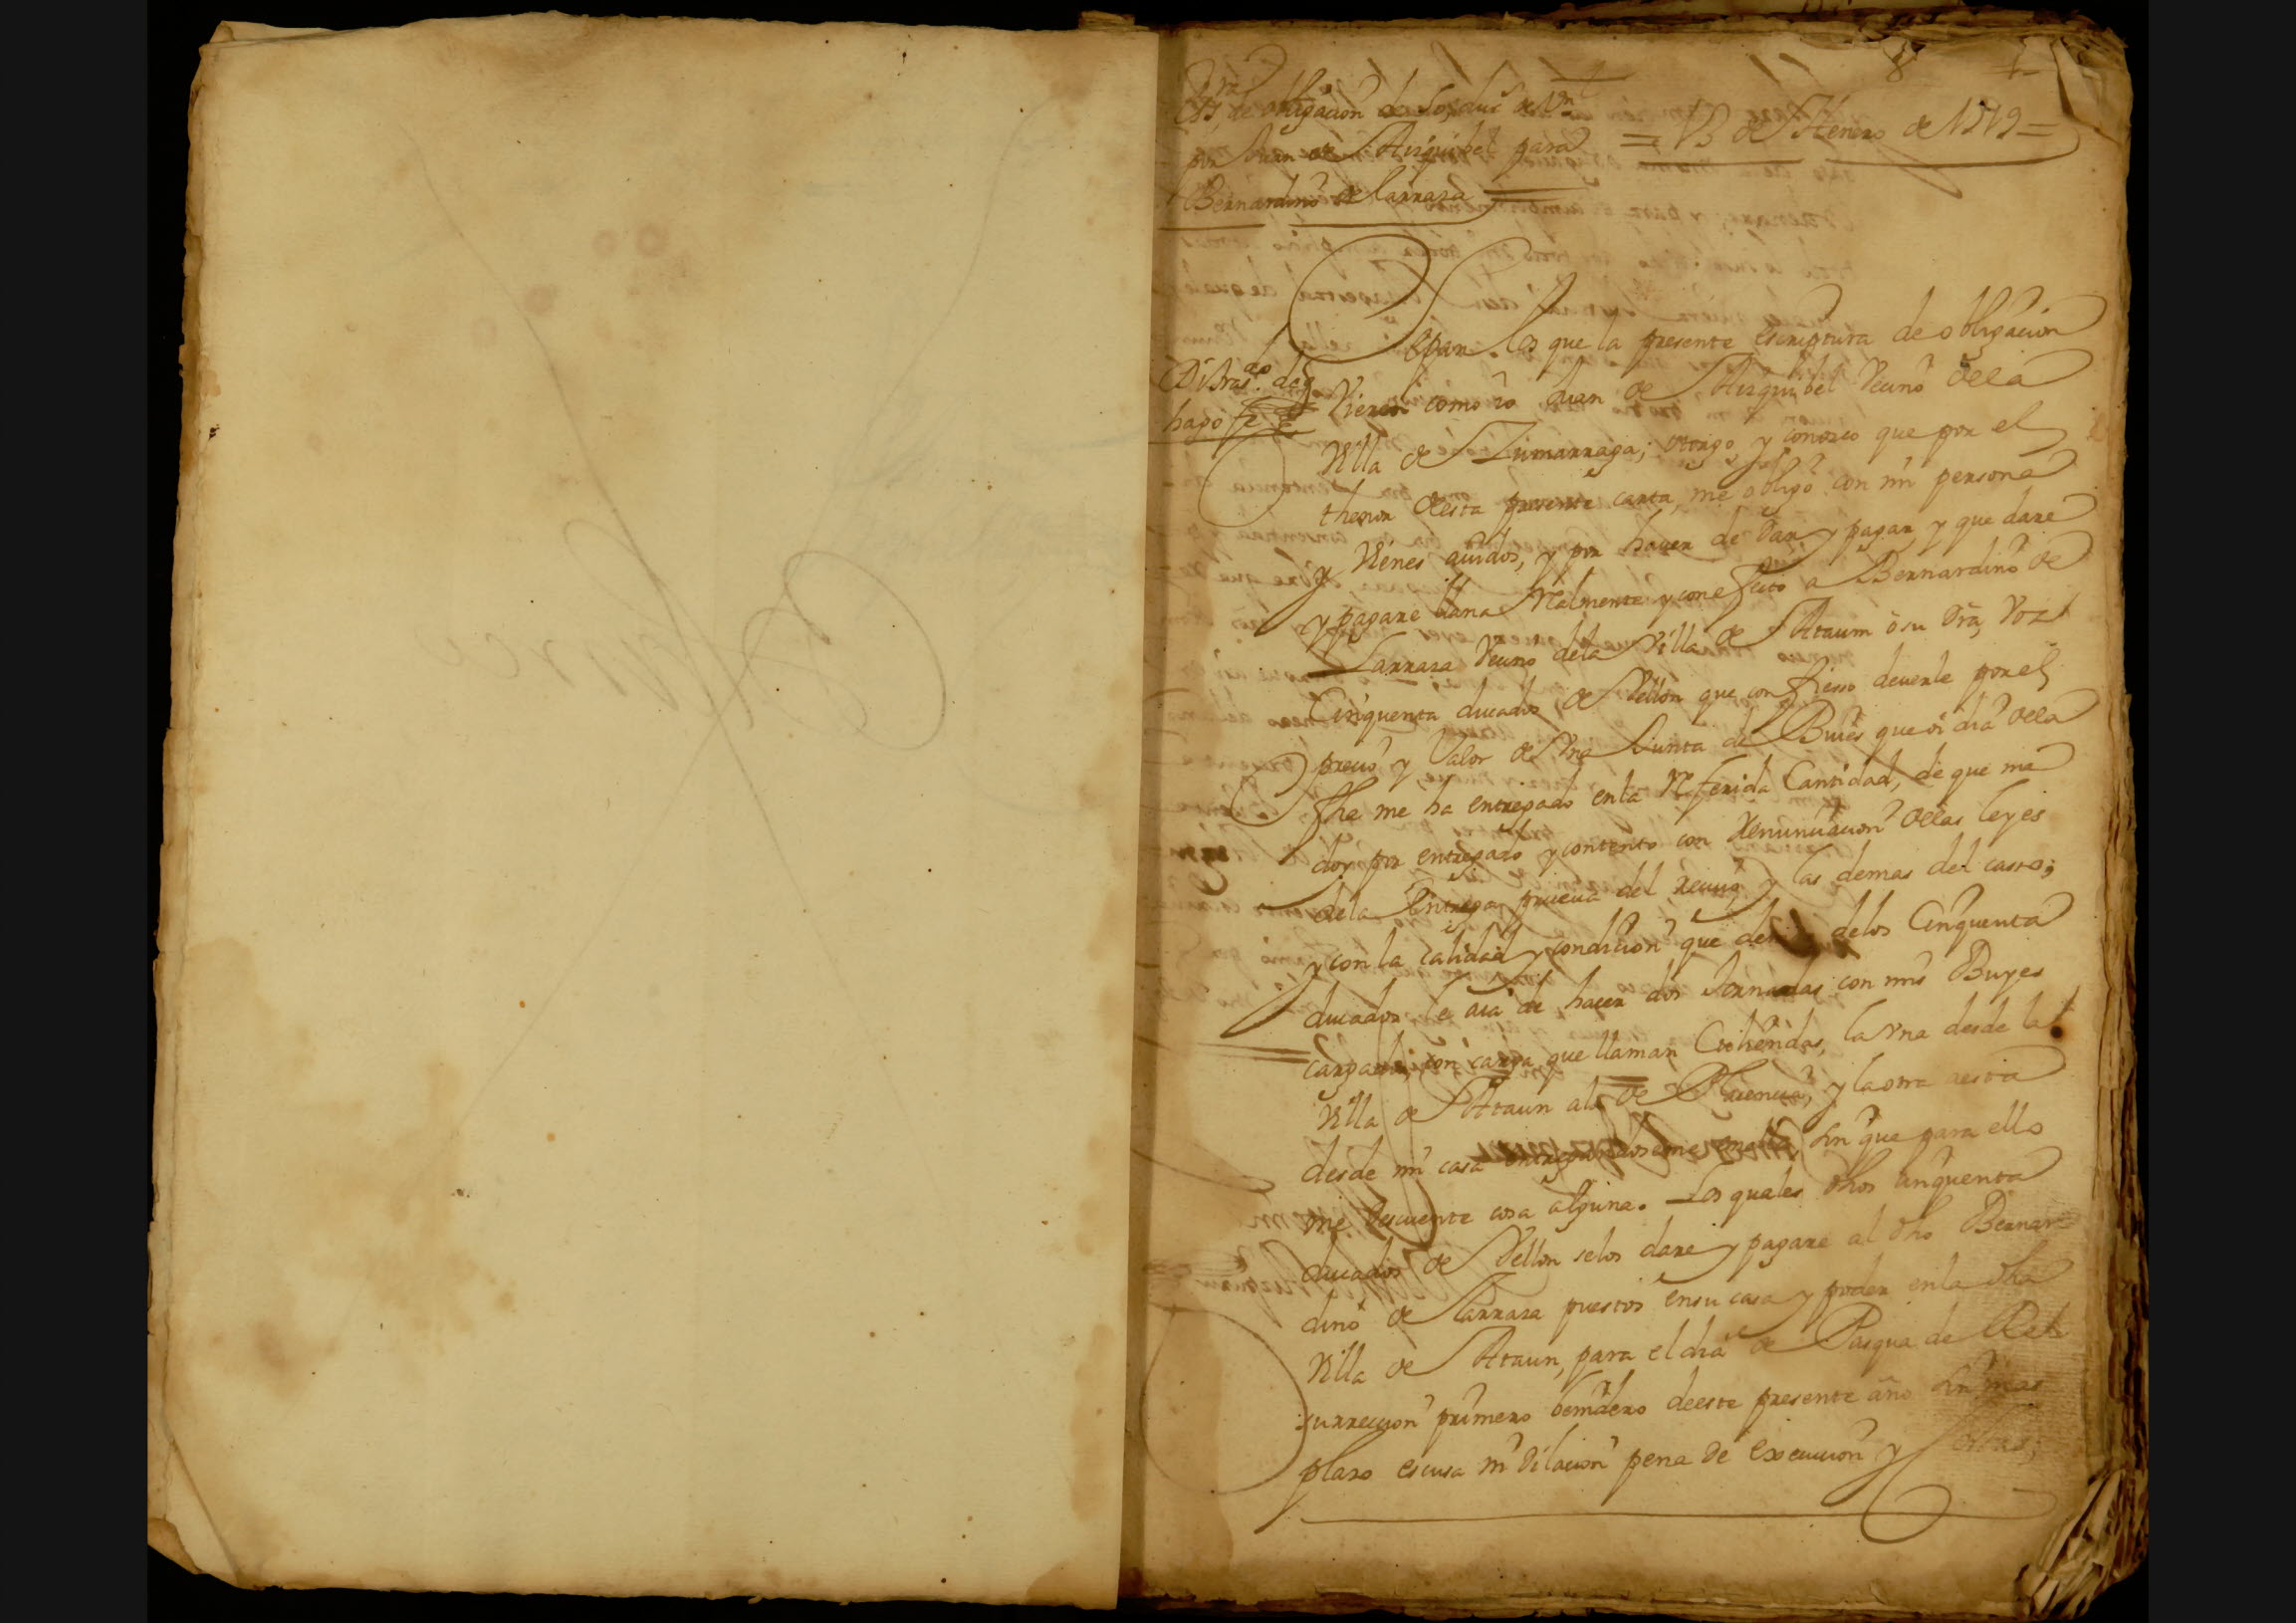 de obligacion de 50 duc.s de Vn
por Juan de Aizquibel para
Bernardino de Larraza
= 13 de Henero de 1719 =
Sepan los que la presente escriptura de obligacion
Vieren como io Juan de Aizquibel Vecino dela
Villa de Zumarraga; otorgo y conozco que por el
thenor desta presente carta, me obligo con mi persona
y Vienes auidos, y por hauer de dar y pagar y que dare
y pagare llana Realmente y con efecto a Bernardino de
Larraza Vecino dela Villa de Ataum o su dra, Voz
Cinquenta ducados de Vellon que confiesso deuerle por el
precio y Valor de Vna Iunta de Buies que oi dia dela
fha me ha entregado enla Referida Cantidad, de que me
doy por entregado y contento con Renunciacion delas leyes
dela Entrega prueua del reciuo y las demas del casso;
y con la calidad y condicion que de delos Cinquenta
ducados le aia de hacer dos Iornadas con mis Buyes
carga que llaman la vna desde la
Villa de Ataun ala de Placencia, y la otra aesta
desde mi casa sin que para ello
me descuente cosa alguna. Los quales dhos cinquenta
ducados de Vellon selos dare y pagare al dho Bernar
dino de Larraza puestos ensu casa y poder enla dha
Villa de Ataun, para el dia de Pasqua de Re
surreccion primero benidero deeste presente año sin mas
plazo escusa ni dilacion pena de execucion y costas;
hago fe